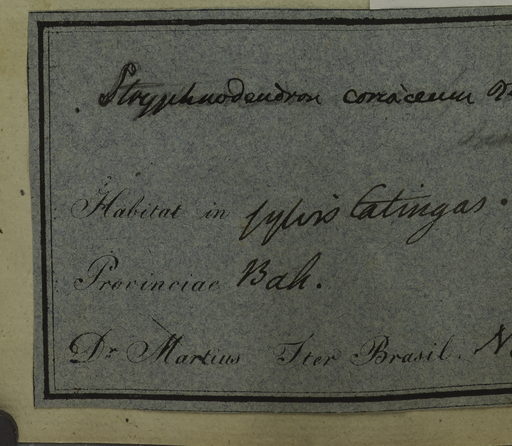 Stryphnodendron coriaceum
Habitat in sylvis Catingas.
Provinciae Bah.
Dr. Martius Iter Brasil. N